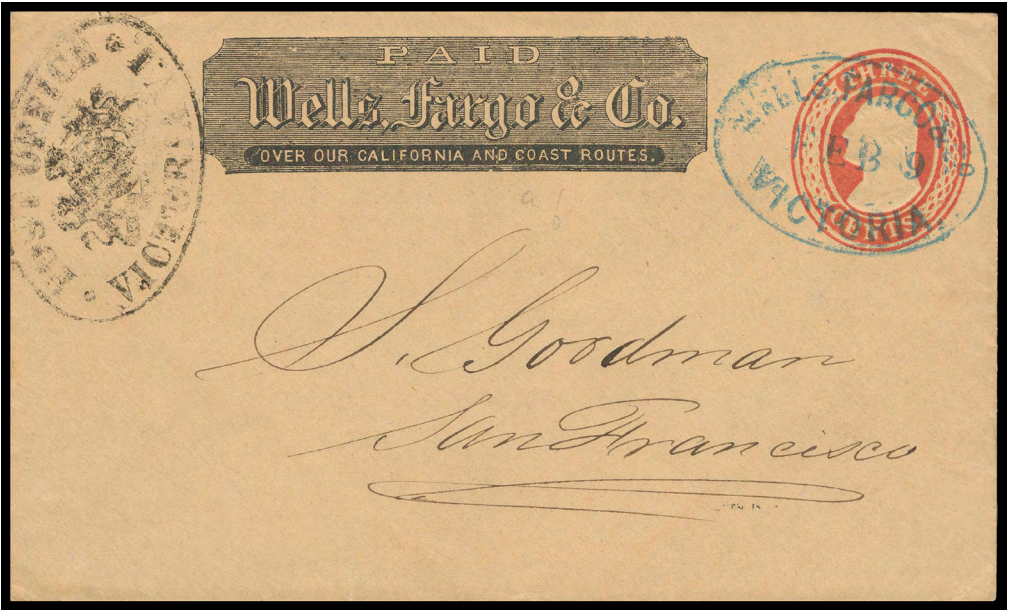 POST OFFICE PAID VICTORIA
PAID
Wells, Fargo & Co.
OVER OUR CALIFORNIA AND COAST ROUTES.
THREE
CENTS
WELLS, FARGO & CO
FEB 9
VICTORIA.
a
b
S. Goodman
San Francisco